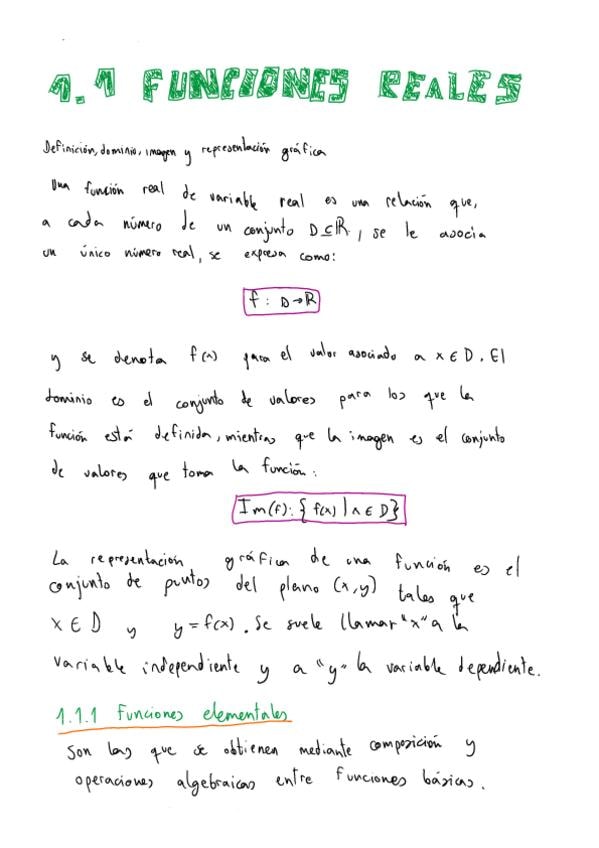 1.1 FUNCIONES REALES
Definición, dominio, imagen y representación gráfica
Una función real de variable real es una relación que,
a cada número de un conjunto D⊆ℝ, se le asocia
un único número real, se expresa como:
f: D→ℝ
y se denota f(x) para el valor asociado a x ∈ D. El
dominio es el conjunto de valores para los que la
función está definida, mientras que la imagen es el conjunto
de valores que toma la función:
Im(f): { f(x) | x ∈ D}
La representación gráfica de una función es el
conjunto de puntos del plano (x,y) tales que
x ∈ D y y = f(x). Se suele llamar "x" a la
variable independiente y a "y" la variable dependiente.
1.1.1 Funciones elementales
Son las que se obtienen mediante composición y
operaciones algebraicas entre funciones básicas.